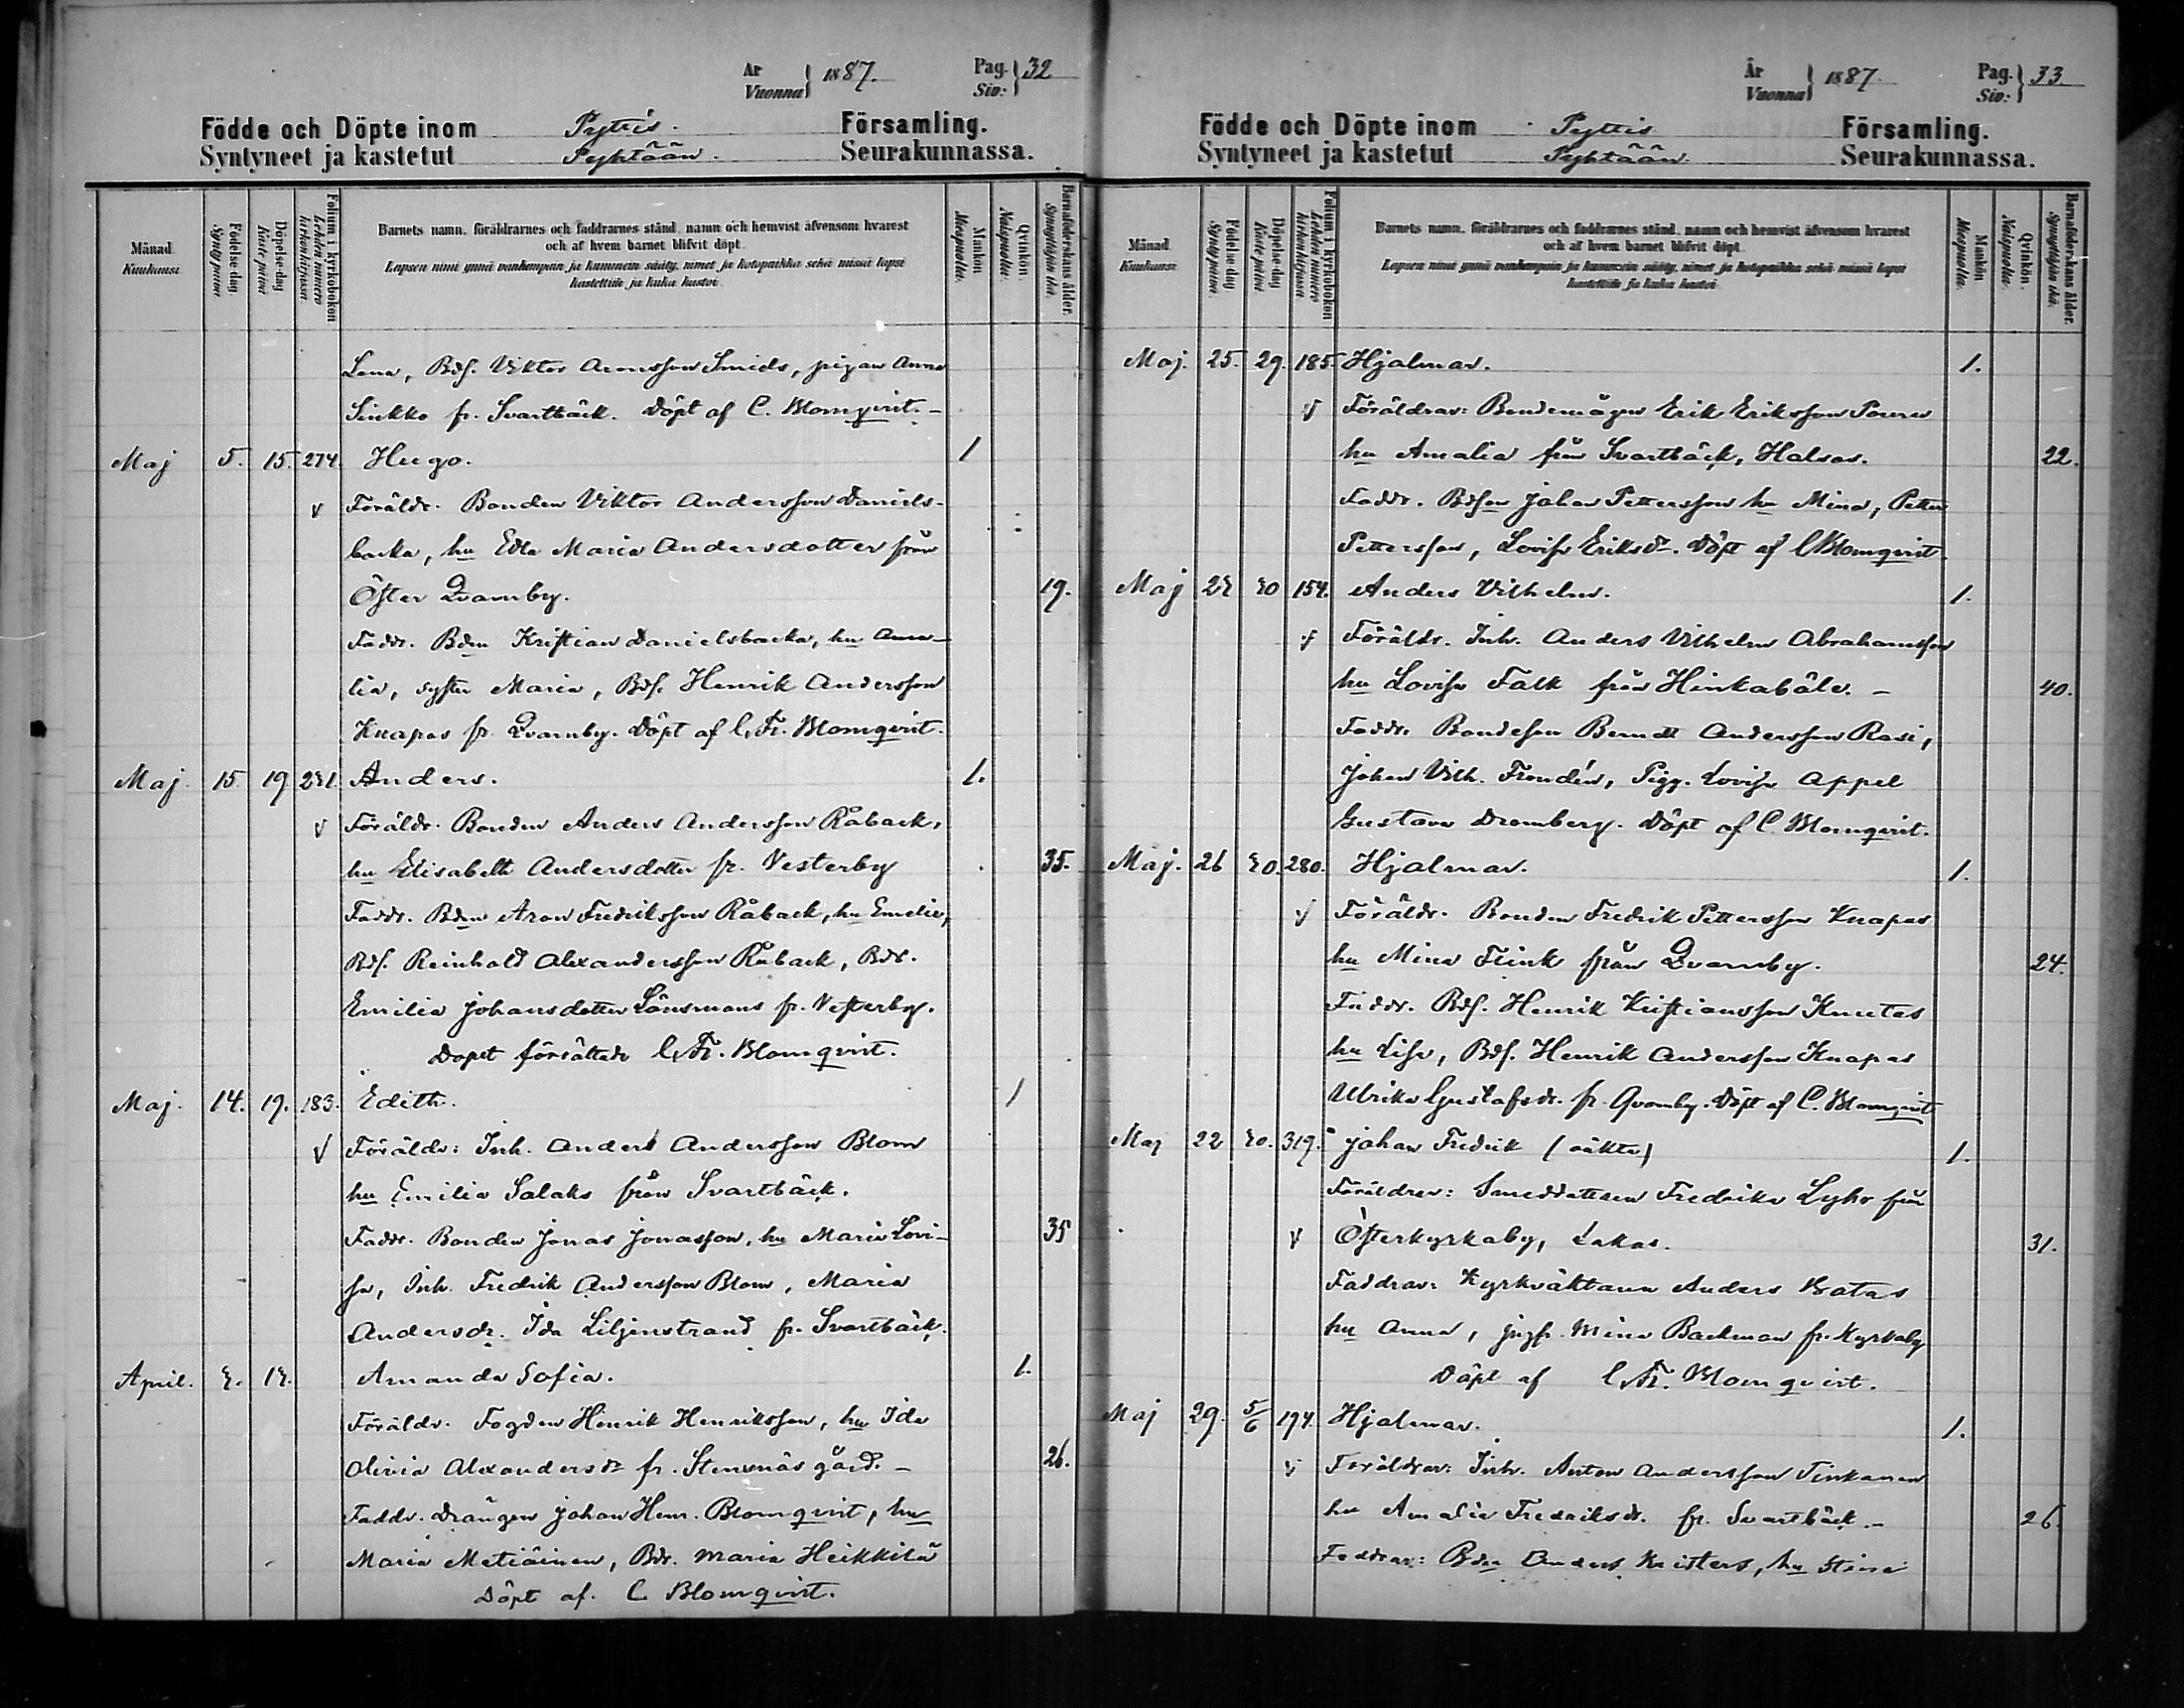 År
Vuonna } 1887. Pag. Siv: } 32
Födde och Döpte inom Pyttis. Församling.
Syntyneet ja kastetut Pyhtään. Seurakunnassa.
Månad Kuukausi
Födelse-dag. Synty päivä
Döpelse-dag Kaste päivä
Folium i kyrkoboken Lehden numero kirkonkirjassa
Barnets namn, föräldrarnes och faddrarnes stånd, namn och hemvist äfvensom hvarest
och af hvem barnet blifvit döpt.
Lapsen nimi ynnä vanhempain ja kummein sääty, nimet ja kotopaikka sekä missä lapsi
kastettiin ja kuka kastoi.
Mankön Miespuolta.
Qvinkön. Naispuolta.
Barnaföderskans ålder. Synnyttäjän ikä.
Lena, Bds. Viktor Aronsson Smids, pigan Anna
Sinkko fr. Svartbäck. Döpt af C. Blomqvist.
Maj 5. 15. 274. Hugo. 1
v Föräldr. Bonden Viktor Andersson Daniels-
backa, hu Edla Maria Andersdotter från
Öster Qvarnby. 19.
Faddr. Bdn Kristian Danielsbacka, hu Ama-
lia, syster Maria, Bds. Henrik Andersson
Knapas fr. Qvarnby. Döpt af C. Fr. Blomqvist.
Maj. 15. 19 231. Anders. 1.
v Föräldr. Bonden Anders Andersson Råback,
hu Elisabeth Andersdotter fr. Vesterby 35.
Faddr. Bdn Aron Fredriksson Råback, hu Emelie,
Bds. Reinhold Alexandersson Råback, Bdr.
Emilia Johansdotter Länsmans fr. Vesterby.
Dopet förrättade C. Fr. Blomqvist.
Maj. 14. 19. 183. Edith. 1
v Föräldr: Inh. Anders Andersson Blom
hu Emilia Salaks från Svartbäck.
Faddr. Bonden Jonas Jonasson, hu Maria Lovi- 35
sa, Inh. Fredrik Andersson Blom, Maria
Andersdr. Ida Liljenstrand fr. Svartbäck.
April. 3. 13. Amanda Sofia. 1.
Föräldr. Fogden Henrik Henriksson, hu Ida
Olivia Alexandersdr fr. Stensnäs gård. 26.
Faddr. Drängen Johan Henr. Blomqvist, hu
Maria Matiäinen, Bdr. Maria Heikkilä
Döpt af. C. Blomqvist.
År
Vuonna } 1887. Pag. Siv: } 33.
Födde och Döpte inom Pyttis Församling.
Syntyneet ja kastetut Pyhtään. Seurakunnassa.
Månad Kuukausi
Födelse-dag Synty päivä.
Döpelse-dag Kaste päivä.
Folium i kyrkoboken Lehden numero kirkonkirjassa
Barnets namn, föräldrarnes och faddrarnes stånd, namn och hemvist äfvensom hvarest
och af hvem barnet blifvit döpt.
Lapsen nimi ynnä vanhempain ja kummein sääty, nimet ja kotopaikka sekä missä lapsi
kastettiin ja kuka kastoi.
Mankön Miespuolta.
Qvinkön. Naispuolta.
Barnaföderskans ålder. Synnyttäjän ikä.
Maj. 25. 29. 185. Hjalmar. 1.
v Föräldrar: Bondemågen Erik Eriksson
hu Amalia från Svartbäck, Halsas. 22.
Faddr. Bdson Johan Pettersson hu Mina, Petter
Pettersson, Lovisa Eriksdr. Döpt af C Blomqvist
Maj 23 30 154. Anders Vilhelm. 1.
v Föräldr. Inh. Anders Vilhelm Abrahamsson
hu Lovisa Falk från Hinkaböle. 40.
Faddr. Bondeson Berndt Andersson Rasi,
Johan Vilh. Frondén, Pigg. Lovisa Appel
Gustava Dromberg. Döpt af C. Blomqvist.
Maj. 26 30. 280. Hjalmar. 1.
v Föräldr. Bonden Fredrik Pettersson Knapas
hu Mina Fiink från Qvarnby. 24.
Faddr. Bds. Henrik Kristiansson Knutas
hu Lisa, Bds. Henrik Andersson Knapas
Ulrika Gustafsdr. fr. Qvarnby. Döpt af C. Blomqvist
Maj 22 30. 319. Johan Fredrik (oäkta) 1.
Föräldrar: Smeddottern Fredrika Lyhr från
v Österkyrkaby, Lakas. 31.
Faddrar: Kyrkväktaren Anders Botas
hu Anna, jngfr. Mina Backman fr. Kyrkoby
Döpt af C. Fr. Blomqvist.
Maj 29. 5/6 194. Hjalmar. 1.
v Föräldrar: Inh. Anton Andersson Tinkanen
hu Amalia Fredriksdr. fr. Svartbäck. 26.
Faddrar: Bdn Anders Keisters, hu Stina